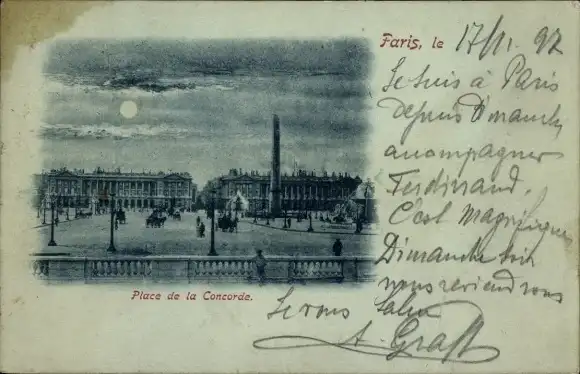 Paris, le 17/11. 97
Je suis à Paris
depuis Dimanche
accompagner
Ferdinand.
C'est magnifique
Dimanche soir
nous reviendrons
Je vous salue
A. Graff
Place de la Concorde.